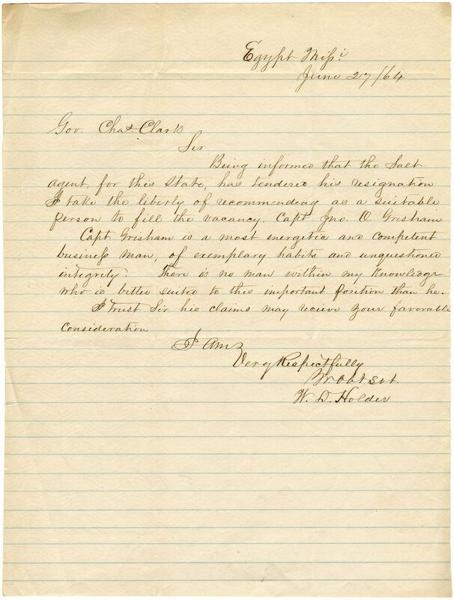 Egypt Missi
June 27/64
Gov. Chas Clark
Sir
Being informed that the Salt
agent, for this State, has tendered his resignation
I take the liberty of recommending as a suitable
person to fill the vacancy, Capt Jno. O. Grisham
Capt. Grisham is a most energetic and competent
business man, of exemplary habits and unquestioned
integrity There is no man within my Knowledge
who is better suited to this important position than he.
I trust Sir his claims may recieve your favorable
Consideration
I Am
Very Respectfully
Yr obt svt
W. D. Holder